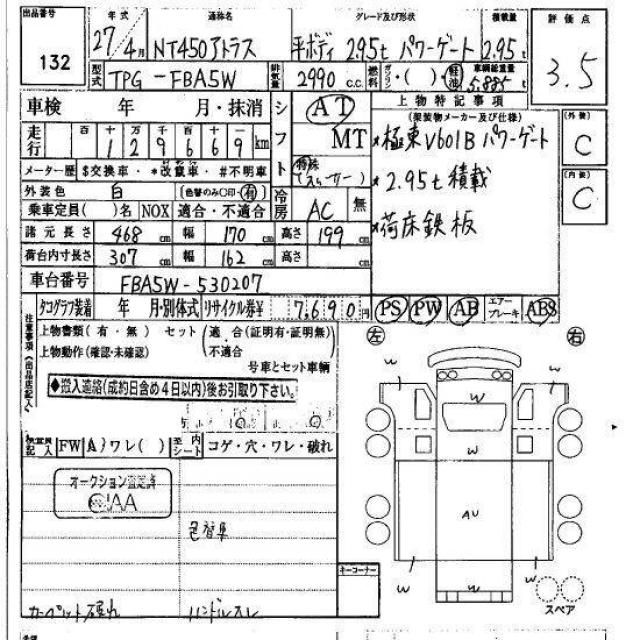 出品番号 年式 通称名 グレード及び形状 積載量 評価点
132 27/4月 NT450アトラス 平ボディ 2.95t パワーゲート 2.95t 3.5
型式 TPG-FBA5W 排気量 2990 c.c. 燃料 ガソリン・( )・軽油 車輌総重量 5.885t
車検 年 月・抹消 シフト AT MT 上物特記事項
(架装物メーカー及び仕様) 外装 C
走行 百 十 万 千 百 十 km
129669
*極東V601Bパワーゲート
メーター歴 $交換車・*改竄車・#不明車
*2.95t積載 内装 C
外装色 白 (色替のみ○印・有) 冷房 AC 無
乗車定員( )名 NOX 適合・不適合
*荷床鉄板
諸元長さ 468cm 幅 170cm 高さ 199cm
荷台内寸長さ 307cm 幅 162cm 高さ cm
車台番号 FBA5W-530207
タコグラフ装着 年 月・別体式 リサイクル券¥ 7,690円 PS PW AB エアーブレーキ ABS
注意事項(出品店記入)
上物書類(有・無) セット(適 合(証明有・証明無)
左 右
上物動作(確認・未確認) 不適合
号車とセット車輌
◆搬入連絡(成約日含め4日以内)後お引取り下さい。
検査員記入 FW A ワレ( ) 室内シート コゲ・穴・ワレ・破れ
オークション査定済
色替車
カーペット汚れ ハンドルスレ
キーコーナー
W W
W
W
AU
W W W
スペア